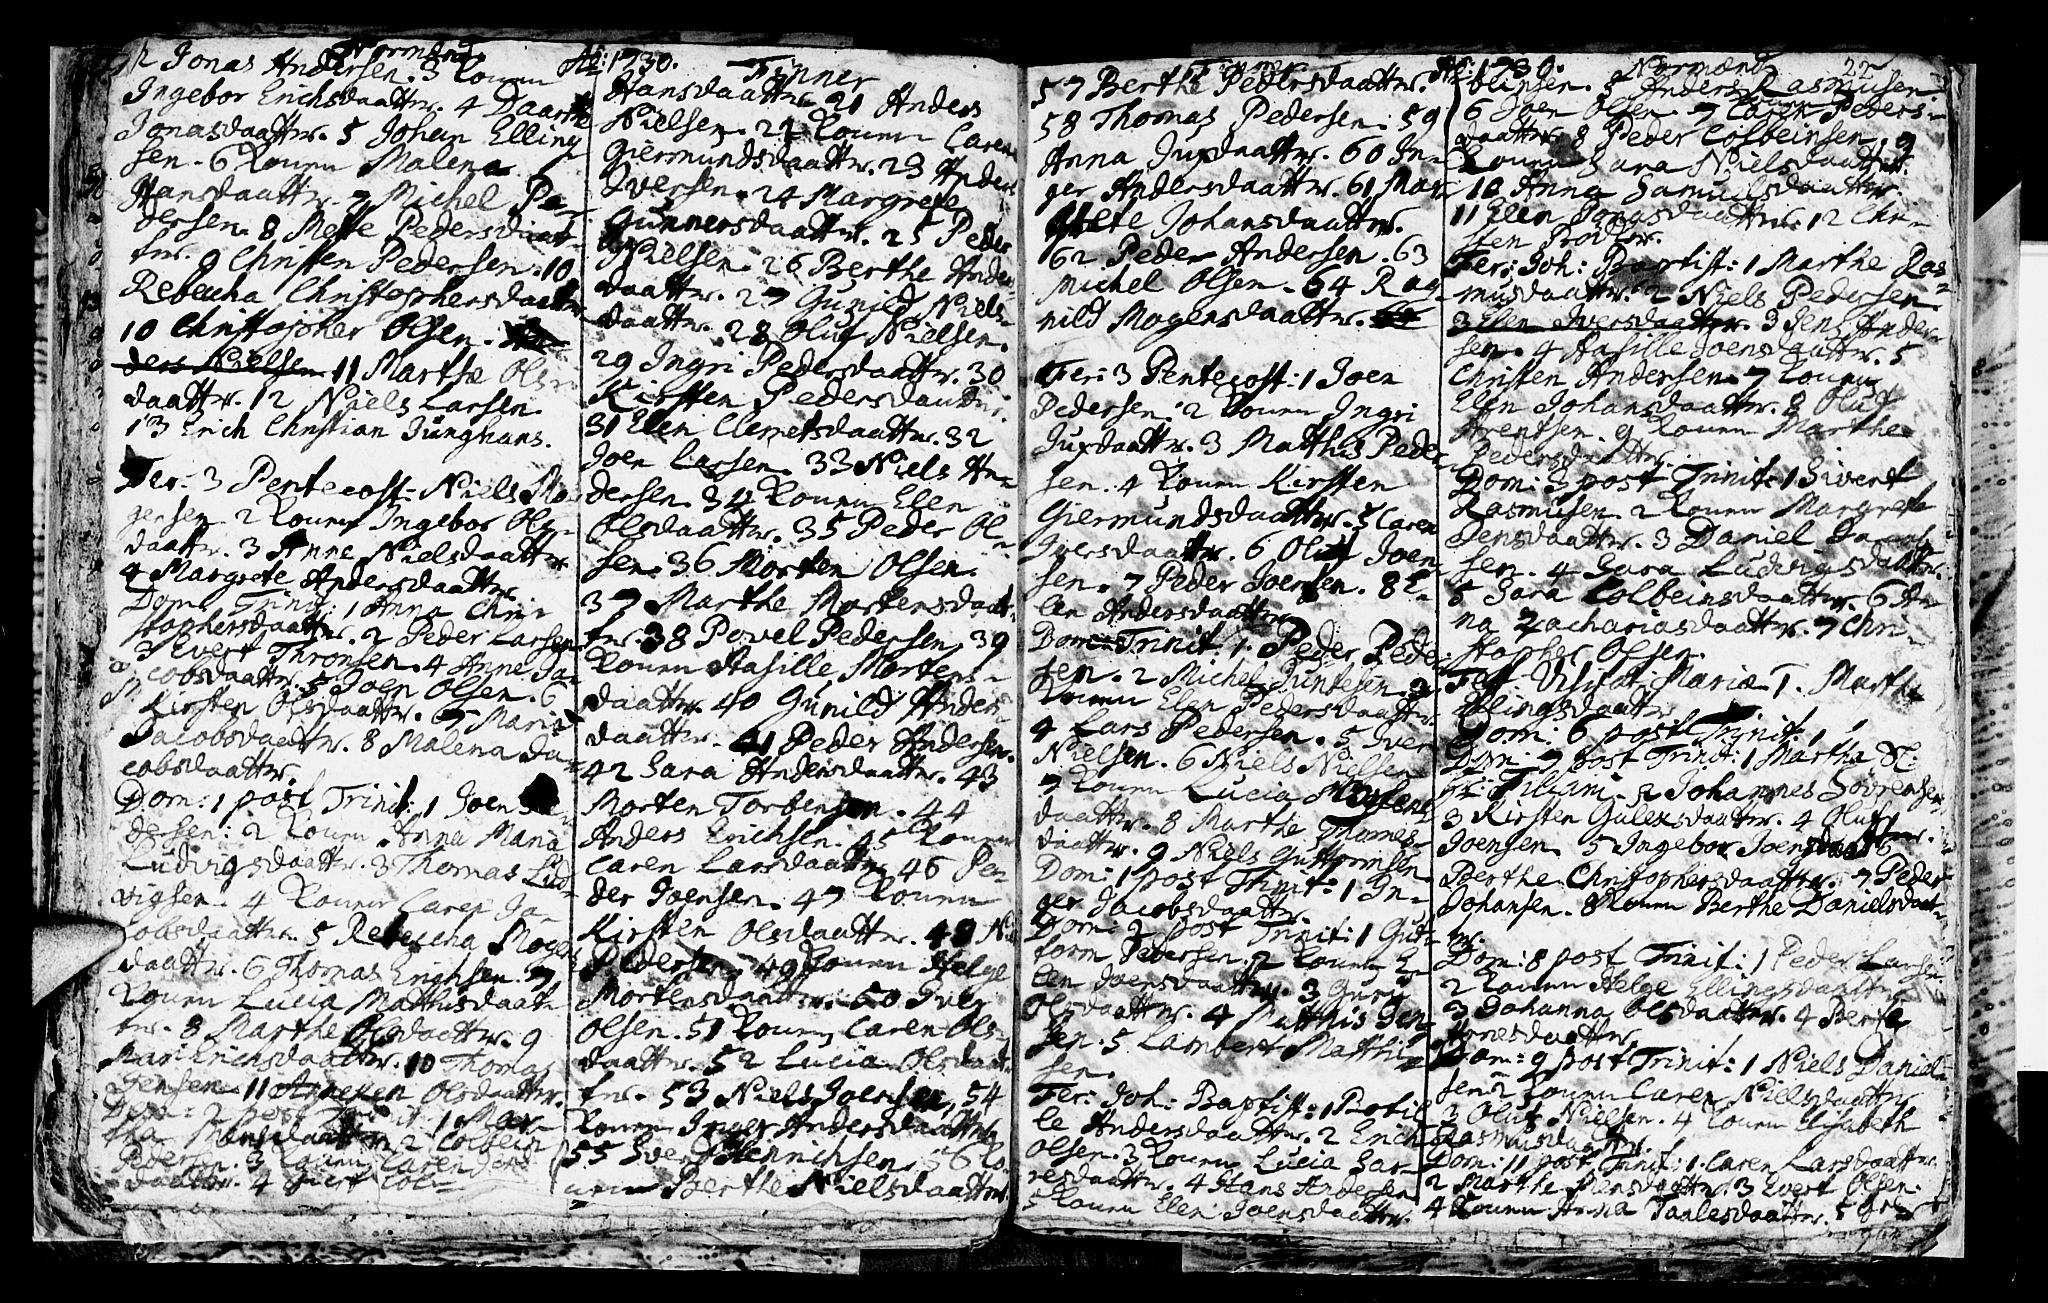 Normænd. Ao: 1730.
Jonas Andersen. 3 Konen
Ingebor Erichsdaatter. 4 Daarthe
Jonasdaatter. 5 Johan Elling
sen. 6 Konen Malena
Hansdaatter. 7 Michel Pe-
dersen. 8 Mette Pedersdaat-
ter. 9 Christen Pedersen. 10
Rebecha Christophersdaatter
10 Christopher Olsen.
ders Nielsen 11 Marthe Ols-
daatter. 12 Niels Larsen.
13 Erich Christian Junghans.
Fer: 3 Pentecost: Niels Mo
gensen. 2 Konen Ingebor Ols-
daatter. 3 Anne Nielsdaatter
4 Margrete Andersdaatter.
Dom: Trinit: 1 Anna Chri
stophersdaatter. 2 Peder Larsen
3 Evert Thronsen. 4 Anne Ja-
cobsdaatter. 5 Joen Olsen. 6
Kirsten Olsdaatter. 7 Maria
Jacobsdaatter. 8 Malena Ja-
cobsdaatter.
Dom: 1 post Trinit: 1 Joen
dersen: 2 Konen Anna Maria
Ludvigsdaatter. 3 Thomas Lud-
vigsen. 4 Konen Caren Ja-
cobsdaatter. 5 Rebecha Mogens
daatter. 6 Thomas Erichsen. 7
Konen Lucia Mathisdaat-
ter. 8 Marthe Olsdaatter. 9
Mari Erichsdaatter. 10 Thomas
Jensen. 11 Olsdaatter.
Dom: 2 post Trinit: 1 Mar-
tha daatter 2 Colbein
Pedersen. 3 Konen Caren Jens
daatter. 4 Col-
Finner
Hansdaatter. 21 Anders
Nielsen. 22 Konen Caren
Giermundsdaatter. 23 Anders
Iversen. 24 Margrete
Gunnersdaatter. 25 Peder
Nielsen. 26 Berthe Anders-
daatter. 27 Gunild Niels-
daatter. 28 Oluf Nielsen.
29 Ingri Pedersdaatter. 30
Kirsten Pedersdaatter.
31 Elen Clemetsdaatter. 32
Joen Larsen. 33 Niels An-
dersen. 34 Konen Elen
Olsdaatter. 35 Peder Ol-
sen. 36 Morten Olsen.
37 Marthe Mortensdaat-
ter. 38 Povel Pedersen, 39
Konen Aasille Mortens-
daatter. 40 Gunild Anders-
daatter. 41 Peder Andersen.
42 Sara Andersdaatter. 43
Morten Torbensen. 44
Anders Erichsen. 45 Konen
Caren Larsdaatter. 46 Pe-
der Joensen. 47 Konen
Kirsten Olsdaatter. 48
Pedersen. 49 Konen Helge
Mortensdaatter. 50 Iver
Olsen. 51 Konen Caren Ols
daatter. 52 Lucia Olsdaat-
ter. 53 Niels Joensen, 54
Konen Inger Andersdaatter
55 Henrichsen. 56 Ko-
nen Berthe Nielsdaatter.
Finner
57 Berthe Pedersdaatter.
58 Thomas Pedersen. 59
Anna Juxdaatter. 60 In-
ger Andersdaatter. 61 Mar
grete Johansdaatter.
62 Peder Andersen. 63
Michel Olsen. 64 Rag
nild Mogensdaatter.
Fer: 3 Pentecost: 1 Joen
Pedersen. 2 Konen Ingri
Juxdaatter. 3 Mathis Peder
sen. 4 Konen Kirsten
Giermundsdaatter. 5 Caren
Iversdaatter. 6 Oluf Joen-
sen. 7 Peder Joensen. 8 E-
len Andersdaatter
Dom: Trinit: 1. Peder Peder
sen. 2 Michel 3.
Konen Elen Pedersdaatter
4 Lars Pedersen. 5 Iver
Nielsen. 6 Niels Nielsen
7 Konen Lucia
daatter. 8 Marthe Thomes-
daatter. 9 Niels Guttormsen
Dom: 1 post Trinit: 1 In-
ger Jacobsdaatter.
Dom: 2 post Trinit: 1 Gut-
torm Pedersen. 2 Konen E-
len Joensdaatter. 3 Guri
Olsdaatter. 4 Matthis Jen-
sen. 5 Lambert Matthi-
sen.
Fer: Joh: Baptist: 1 Botil
le Andersdaatter. 2 Erich
Olsen. 3 Konen Lucia Lar-
sdaatter. 4 Hans Andersen
5 Konen Elen Joensdaatter.
Ao: 1730. Normænd. 22
beinsen. 5 Anders Rasmusen.
6 Joen Olsen. 7 Konen Caren Peders-
daatter. 8 Peder Colbeinsen. 9
Konen Sara Nielsdaatter.
10 Anna Samuelsdaatter
11 Elen Jonasdaatter. 12 Chri-
sten Prodter.
Fer: Joh: Baptist: 1 Marthe Ras-
musdaatter. 2 Niels Pedersen
3 Elen Iversdaatter. 3 Jens Ander
sen. 4 Aasille Joensdaatter. 5
Christen Andersen. 7 Konen
Elen Johansdaatter. 8 Oluf
Arentsen. 9 Konen Marthe
Pedersdaatter.
Dom: 3 post Trinit: 1 Sivert
Rasmusen. 2 Konen Margrete
Jensdaatter. 3 Daniel
sen. 4 Sara Ludvigsdaatter.
5 Sara Colbeinsdaatter. 6 An
na Zachariasdaatter. 7 Chri-
stopher Olsen.
Fest Visitat: Mariæ 1. Marthe
Ellingsdaatter.
Dom: 6 post Trinit: 1
Dom: 7 post Trinit: 1 Martha
2 Johannes Sörrensen
3 Kirsten daatter. 4 Oluf
Joensen. 5 Ingebor Joensdaatter. 6
Berthe Christophersdaatter. 7 Peder
Johansen. 8 Konen Berthe Danielsdaat-
ter.
Dom: 8 post Trinit: 1 Peder Larsen.
2 Konen Helge Ellingsdaatter
3 Johanna Olsdaatter. 4 Berte
Arnesdaatter.
Dom: 9 post Trinit: 1 Niels Daniel-
sen 2 Konen Caren Nielsdaatter
3 Oluf Nielsen. 4 Konen Elisabeth
Rasmusdaatter.
Dom: 11 post Trinit: 1. Caren Larsdaatter
2 Marthe Jensdaatter. 3 Evert Olsen.
4 Konen Anna Taalesdaatter. 5